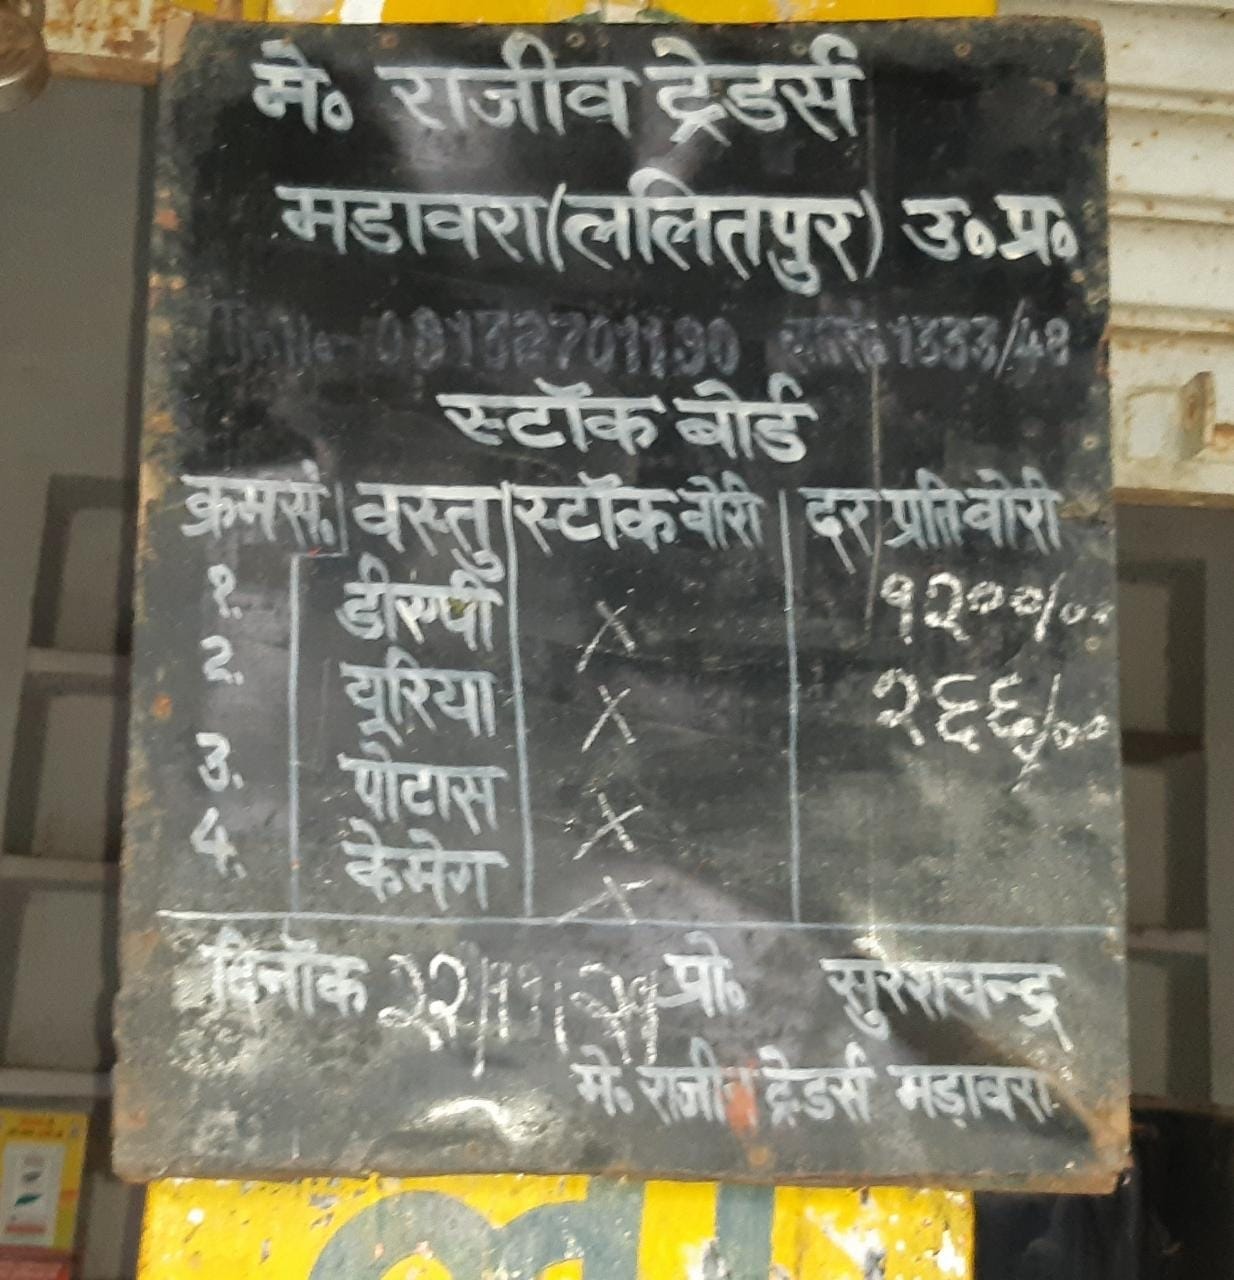 मे० राजीव ट्रेडर्स
मडावरा (ललितपुर) उ०प्र०
1333/48
स्टॉक बोर्ड
क्रमसं. वस्तु स्टॉक बोरी दर प्रति बोरी
१. डीएपी X १२००/००
2. यूरिया X २६६/००
3. पोटास X
4. केमेग X
दिनॉक २२/११/२१ प्रो० सुरेशचन्द्र
मे० राजीव ट्रेडर्स मड़ावरा